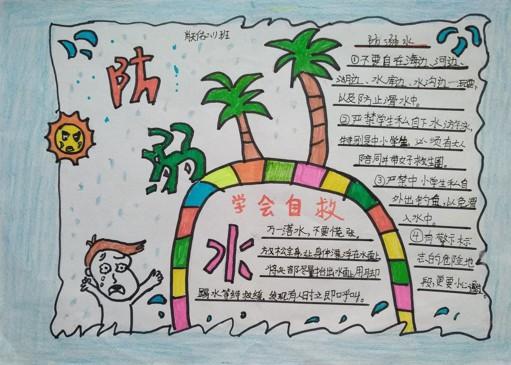 防
溺
水
防溺水
①不要自在海边、河边、
湖边、水库边、水沟边
以及防止滑水中。
②严禁学生私自下水游泳,
特别是中小学生,必须有大人
陪同并带好救生圈。
③严禁中小学生私自
外出钓鱼,以免滑
入水中
④有警示标
志的危险地
段,更要小心
学会自救
万一落水,不要慌张,
放松全身,让身体漂浮在水面上
将头部尽量抬出水面,用脚
踢水等待救援,发现有人时立即呼叫。